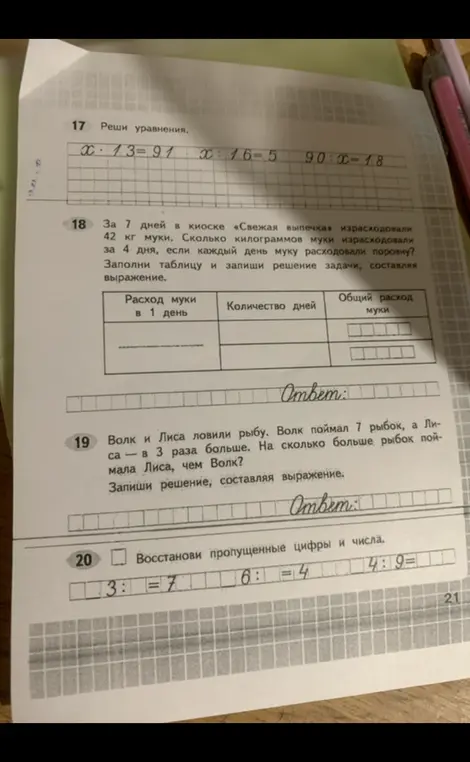 17 Реши уравнения.
х · 13 = 91 х : 16 = 5 90 : х = 18
18 За 7 дней в киоске «Свежая выпечка» израсходовали
42 кг муки. Сколько килограммов муки израсходовали
за 4 дня, если каждый день муку расходовали поровну?
Заполни таблицу и запиши решение задачи, составляя
выражение.
Расход муки
в 1 день
Количество дней
Общий расход
муки
Ответ:
19 Волк и Лиса ловили рыбу. Волк поймал 7 рыбок, а Ли-
са — в 3 раза больше. На сколько больше рыбок пой-
мала Лиса, чем Волк?
Запиши решение, составляя выражение.
Ответ:
20 Восстанови пропущенные цифры и числа.
3 : = 7 6 : = 4 4 : 9 =
21